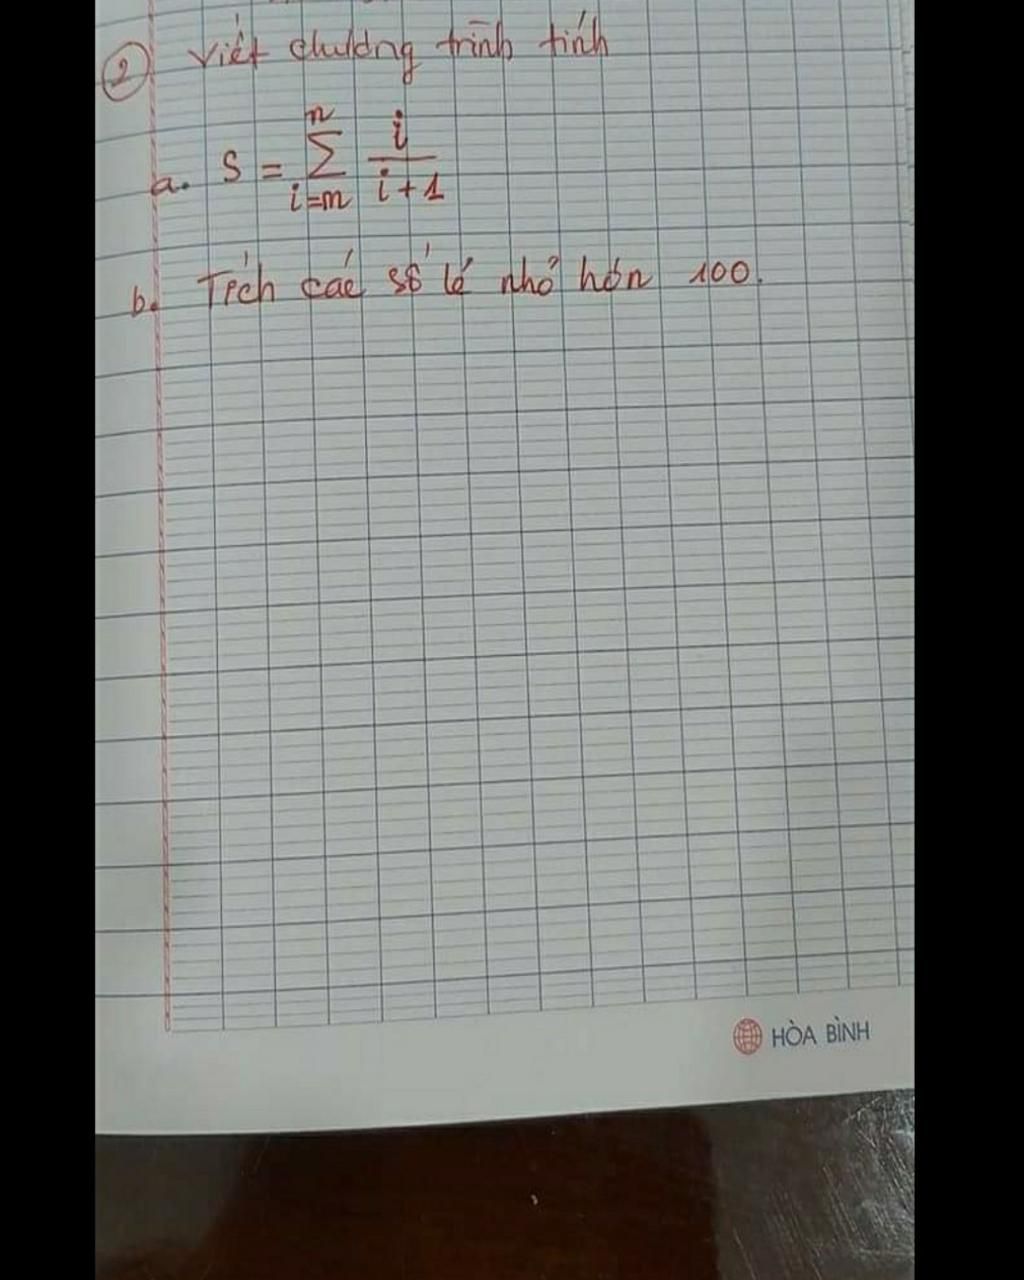 2 Viết chương trình tính
a. S = \sum_{i=m}^{n} \frac{i}{i+1}
b. Tích các số lẻ nhỏ hơn 100.
HÒA BÌNH